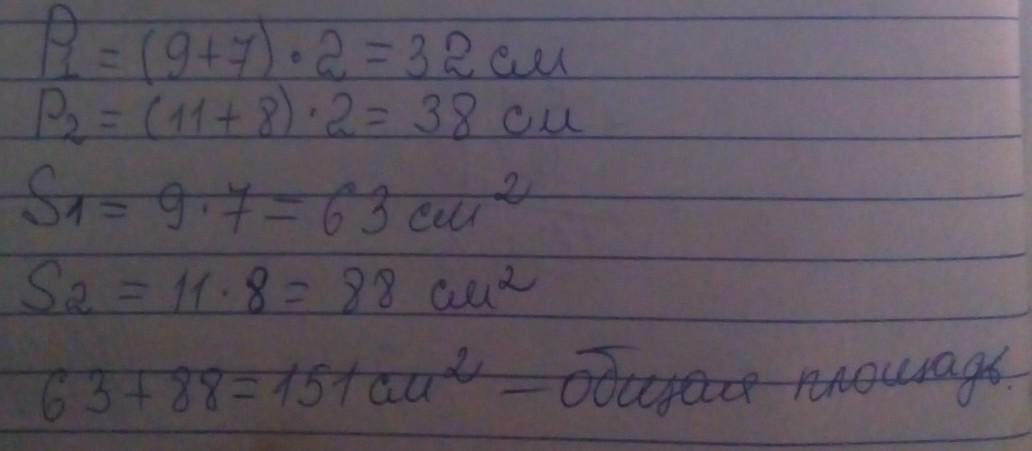 P1 = (9+7)·2 = 32 см
P2 = (11+8)·2 = 38 см
S1 = 9·7 = 63 см²
S2 = 11·8 = 88 см²
63+88=151 см² – общая площадь.